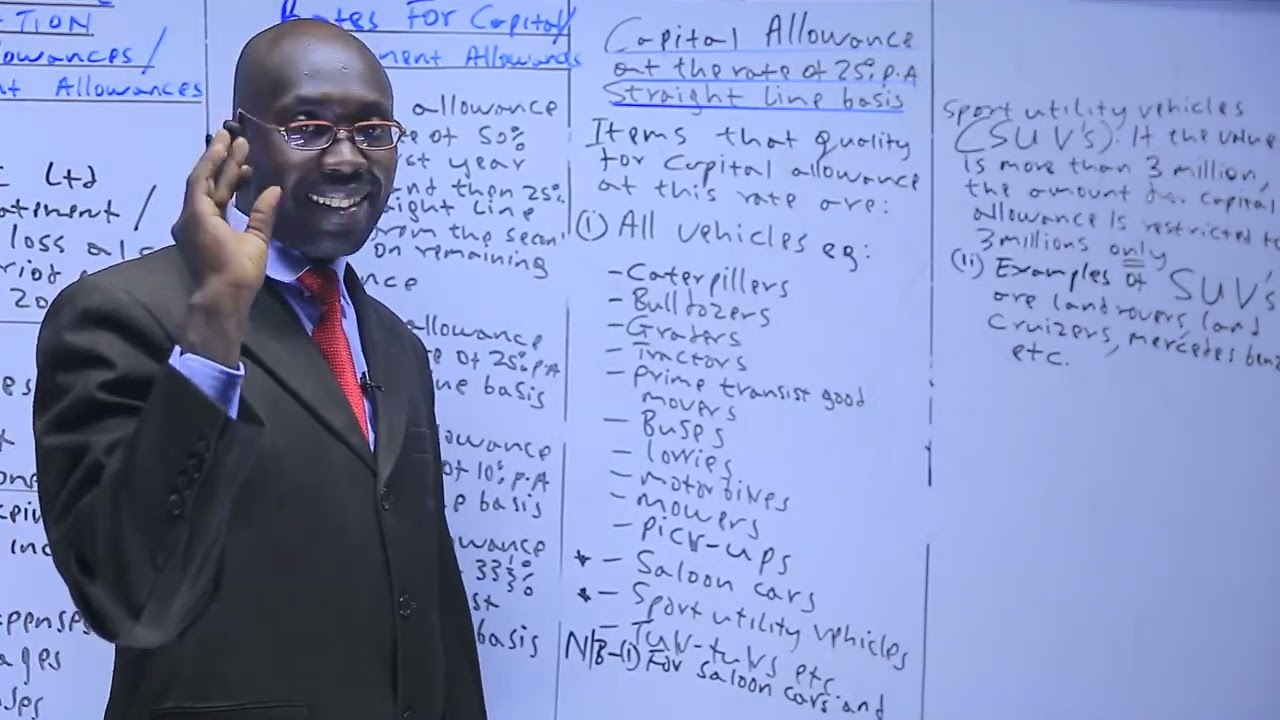 TION
lowances/
t Allowances
Ltd
atement/
loss a/c
20
Rates For Capital/
ment Allowances
allowance
of 50%
st year
and then 25%
aight Line
from the secon
on remaining
nce
allowance
e of 25% P.A
ine basis
owance
of 10% P.A
e basis
owance
33⅓%
st
basis
xpenses
ages
Capital Allowance
at the rate of 25% P.A
Straight Line basis
Items that quality
for Capital allowance
at this rate are:
(i) All vehicles eg:
- Caterpillers
- Bulldozers
- Graders
- Tractors
- Prime transist good
movers
- Buses
- lorries
- motorbikes
- mowers
- Pick-ups
* - Saloon cars
* - Sport utility vehicles
- Tuk-tuks etc
N/B-(i) For saloon cars and
Sport utility vehicles
(SUV's). If the value
is more than 3 million,
the amount for capital
allowance is restricted to
3 millions only
(ii) Examples of SUV's
are landrovers, land
Cruizers, mercedes benz
etc.